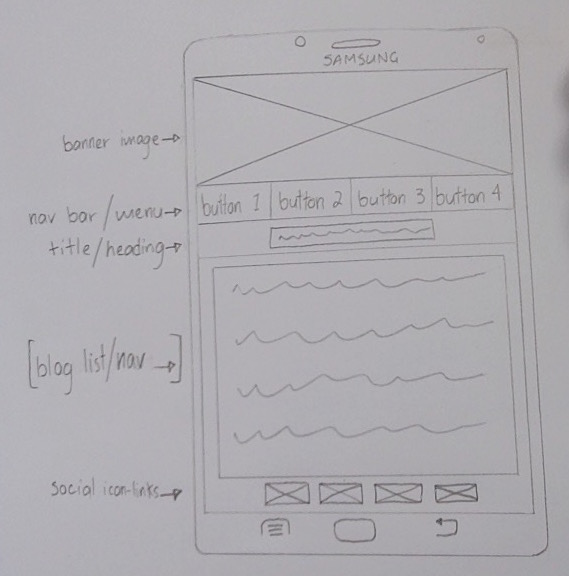 SAMSUNG
banner image
nav bar/menu
button 1 button 2 button 3 button 4
title/heading
[blog list/nav]
social icon-links